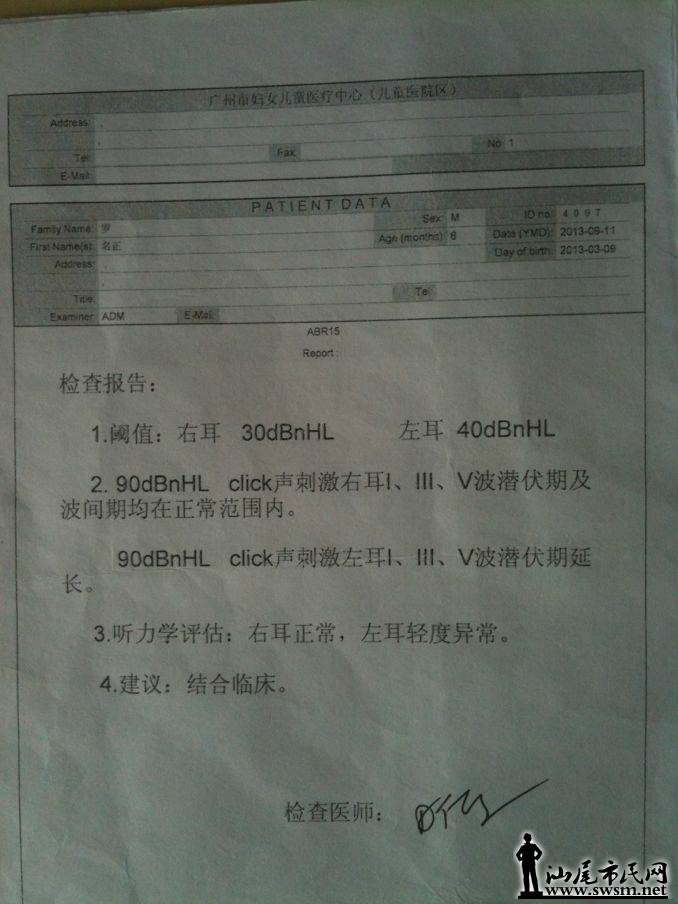 广州市妇女儿童医疗中心（儿童医院区）
Address:
Tel: Fax: No: 1
E-Mail:
PATIENT DATA
Family Name: 罗 Sex: M ID no: 4 0 9 7
First Name(s): 名正 Age (months): 6 Date (YMD): 2013-09-11
Address: Day of birth: 2013-03-09
Title: Tel:
Examiner: ADM E-Mail:
ABR15
Report :
检查报告：
1.阈值：右耳 30dBnHL 左耳 40dBnHL
2. 90dBnHL click声刺激右耳I、III、V波潜伏期及
波间期均在正常范围内。
90dBnHL click声刺激左耳I、III、V波潜伏期延
长。
3.听力学评估：右耳正常，左耳轻度异常。
4.建议：结合临床。
检查医师：
汕尾市民网
www.swsm.net